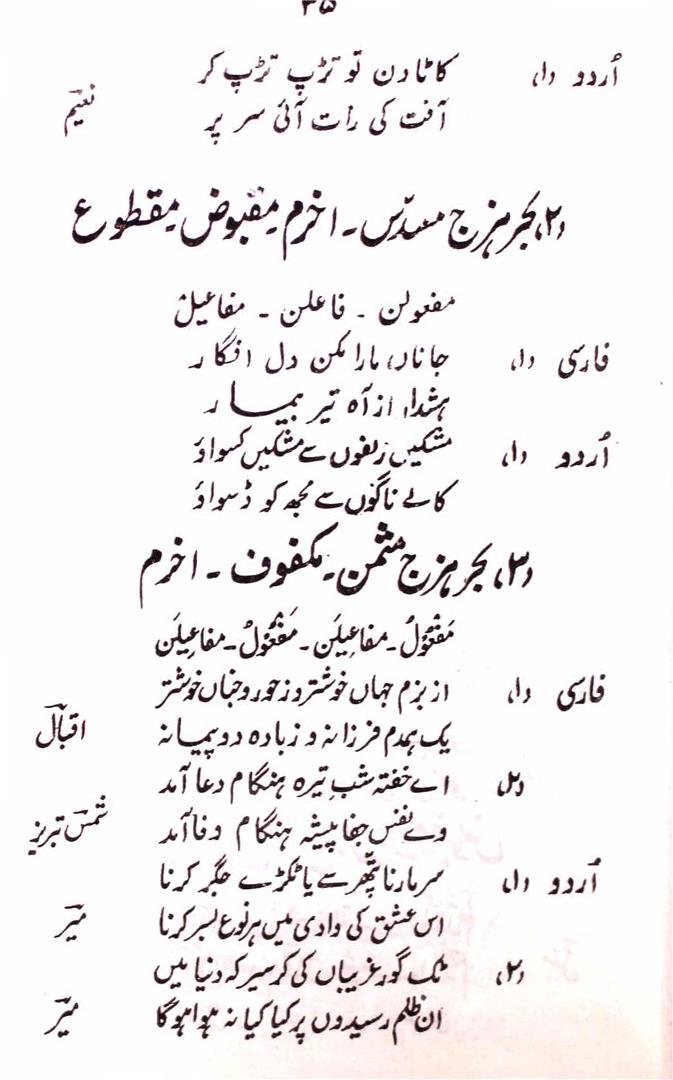 ۳۵
اُردو (۱) کاٹا دن تو تڑپ تڑپ کر
آفت کی رات آئی سر پر نعیم
(۲) بحر ہزج مسدّس ۔ اخرم ۔ مقبوض ۔ مقطوع
مفعولن ۔ فاعلن ۔ مفاعیل
فارسی (۱) جاناں مارا مکن دل افگار
ہشدار از آہ تیر بیمار
اُردو (۱) مشکیں زلفوں سے مشکیں کسواؤ
کالے ناگوں سے مجھ کو ڈسواؤ
(۳) بحر ہزج مثمن ۔ مکفوف ۔ اخرم
مَفْعُوْلُ ۔ مفاعِیلَن ۔ مَفْعُوْلُ ۔ مفاعِیلَن
فارسی (۱) از بزم جہاں خوشتر و ز حور و جناں خوشتر
یک ہمدم فرزانہ و ز بادہ دو پیمانہ اقبالؔ
(۲) اے خفتہ شبِ تیرہ ہنگام دعا آمد
وے نفس جفا پیشہ ہنگام وفا آمد شمسؔ تبریز
اُردو (۱) سر مارنا پتھر سے یا ٹکڑے جگر کرنا
اس عشق کی وادی میں ہر نوع بسر کرنا میرؔ
(۲) ٹک گور غریباں کی کر سیر کہ دنیا میں
ان ظلم رسیدوں پر کیا کیا نہ ہوا ہوگا میرؔ